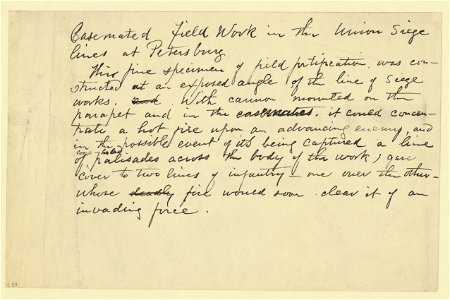 Casemated Field Work in the Union Siege
lines at Petersburg
This fine specimen of field fortification, was con-
structed at an exposed angle of the line of siege
works. and With cannon mounted on the
parapet and in the casemates, it could concen-
trate a hot fire upon an advancing enemy, and
in the possible event of its being captured a line
of palisades across the body of the work, gave
cover to two lines of infantry - one over the other -
whose deadly fire would soon clear it of an
invading force.